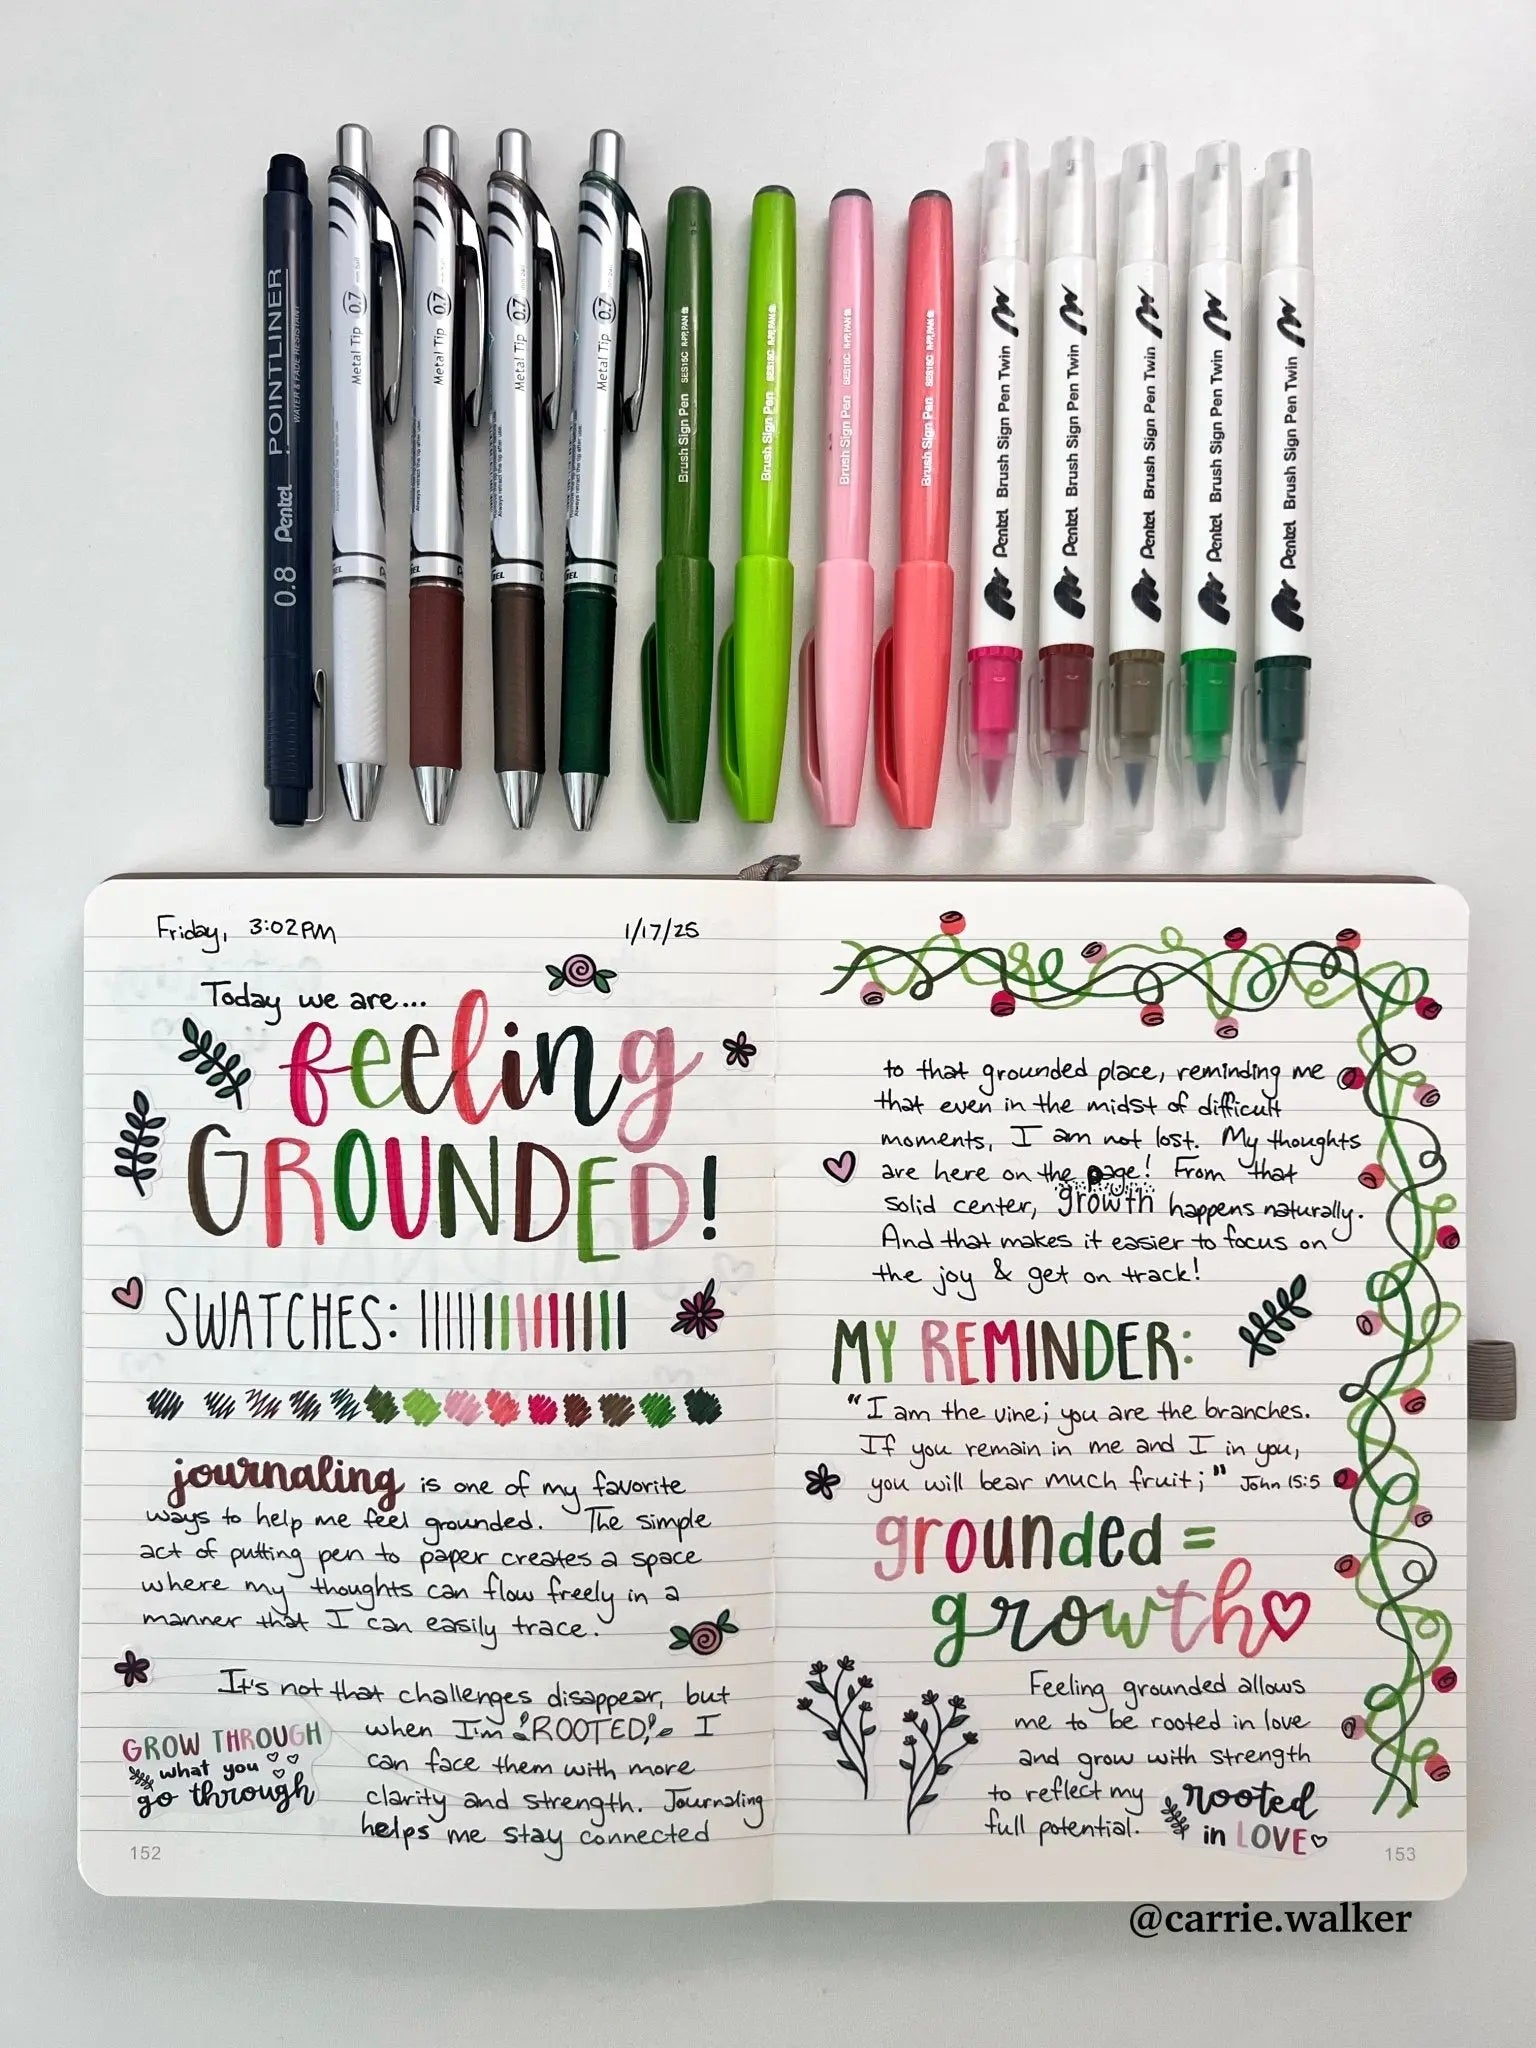 0.8 Pentel POINTLINER
WATER & FADE RESISTANT
Metal Tip 0.7
Metal Tip 0.7
Metal Tip 0.7
Metal Tip 0.7
Brush Sign Pen SES15C
Brush Sign Pen SES15C
Brush Sign Pen SES15C
Brush Sign Pen SES15C
Pentel Brush Sign Pen Twin
Pentel Brush Sign Pen Twin
Pentel Brush Sign Pen Twin
Pentel Brush Sign Pen Twin
Pentel Brush Sign Pen Twin
Friday, 3:02PM 1/17/25
Today we are...
feeling
GROUNDED!
SWATCHES:
journaling is one of my favorite
ways to help me feel grounded. The simple
act of putting pen to paper creates a space
where my thoughts can flow freely in a
manner that I can easily trace.
It's not that challenges disappear, but
when I'm ROOTED, I
can face them with more
clarity and strength. Journaling
helps me stay connected
GROW THROUGH
what you
go through
152
to that grounded place, reminding me
that even in the midst of difficult
moments, I am not lost. My thoughts
are here on the page! From that
solid center, growth happens naturally.
And that makes it easier to focus on
the joy & get on track!
MY REMINDER:
"I am the vine; you are the branches.
If you remain in me and I in you,
you will bear much fruit;" John 15:5
grounded =
growth
Feeling grounded allows
me to be rooted in love
and grow with strength
to reflect my
full potential.
rooted
in LOVE
153
@carrie.walker